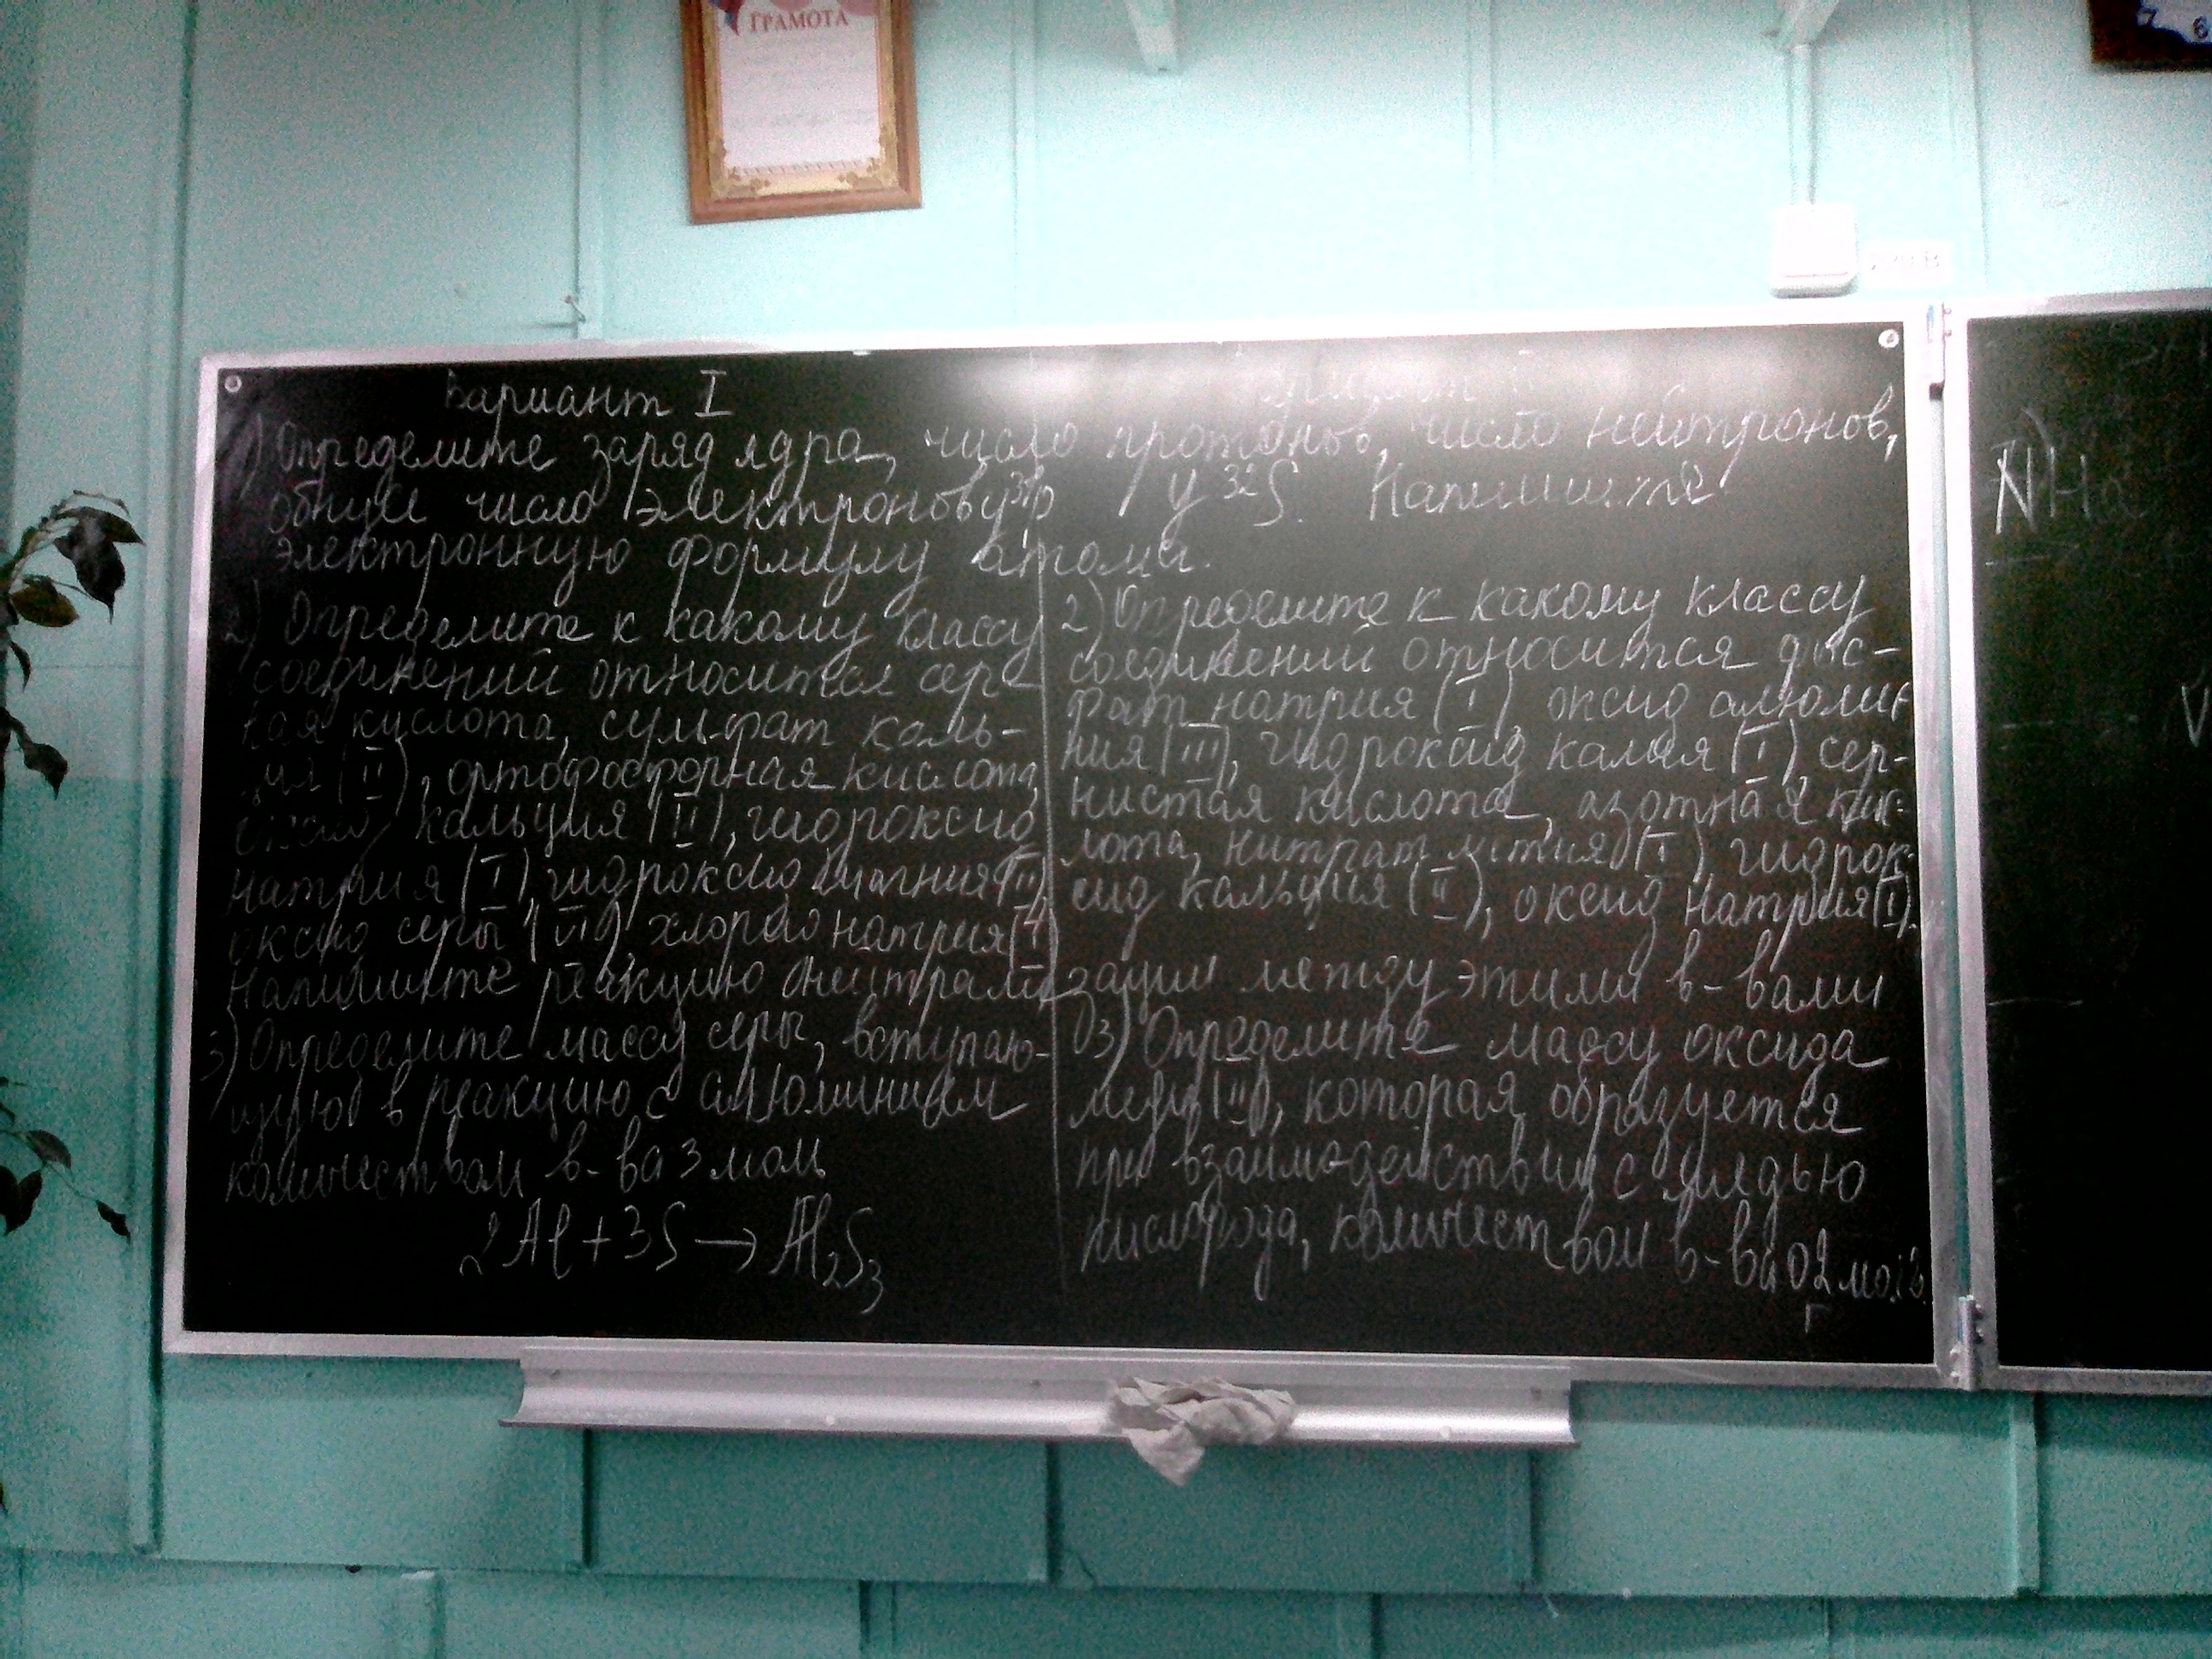 ГРАМОТА
Вариант I
1) Определите заряд ядра, число протонов, число нейтронов,
общее число электронов у ³¹P / у ³²S. Напишите
электронную формулу атома.
2) Определите к какому классу
соединений относится сер-
ная кислота, сульфат каль-
ция (II), ортофосфорная кислота,
оксид кальция (II), гидроксид
натрия (I), гидроксид магния (II),
оксид серы (VI), хлорид натрия (I)
Напишите реакцию нейтрали
3) Определите массу серы, вступаю-
щую в реакцию с алюминием
количеством в-ва 3 моль
2Al + 3S → Al₂S₃
2) Определите к какому классу
соединений относится фос-
фат натрия (I), оксид алюми-
ния (III), гидроксид калия (I) сер-
нистая кислота, азотная кис-
лота, нитрат лития (I), гидрок-
сид кальция (II), оксид натрия (I).
зации между этими в-вами
3) Определите массу оксида
меди (II), которая образуется
при взаимодействии с медью
кислорода, количеством в-ва 02 моль